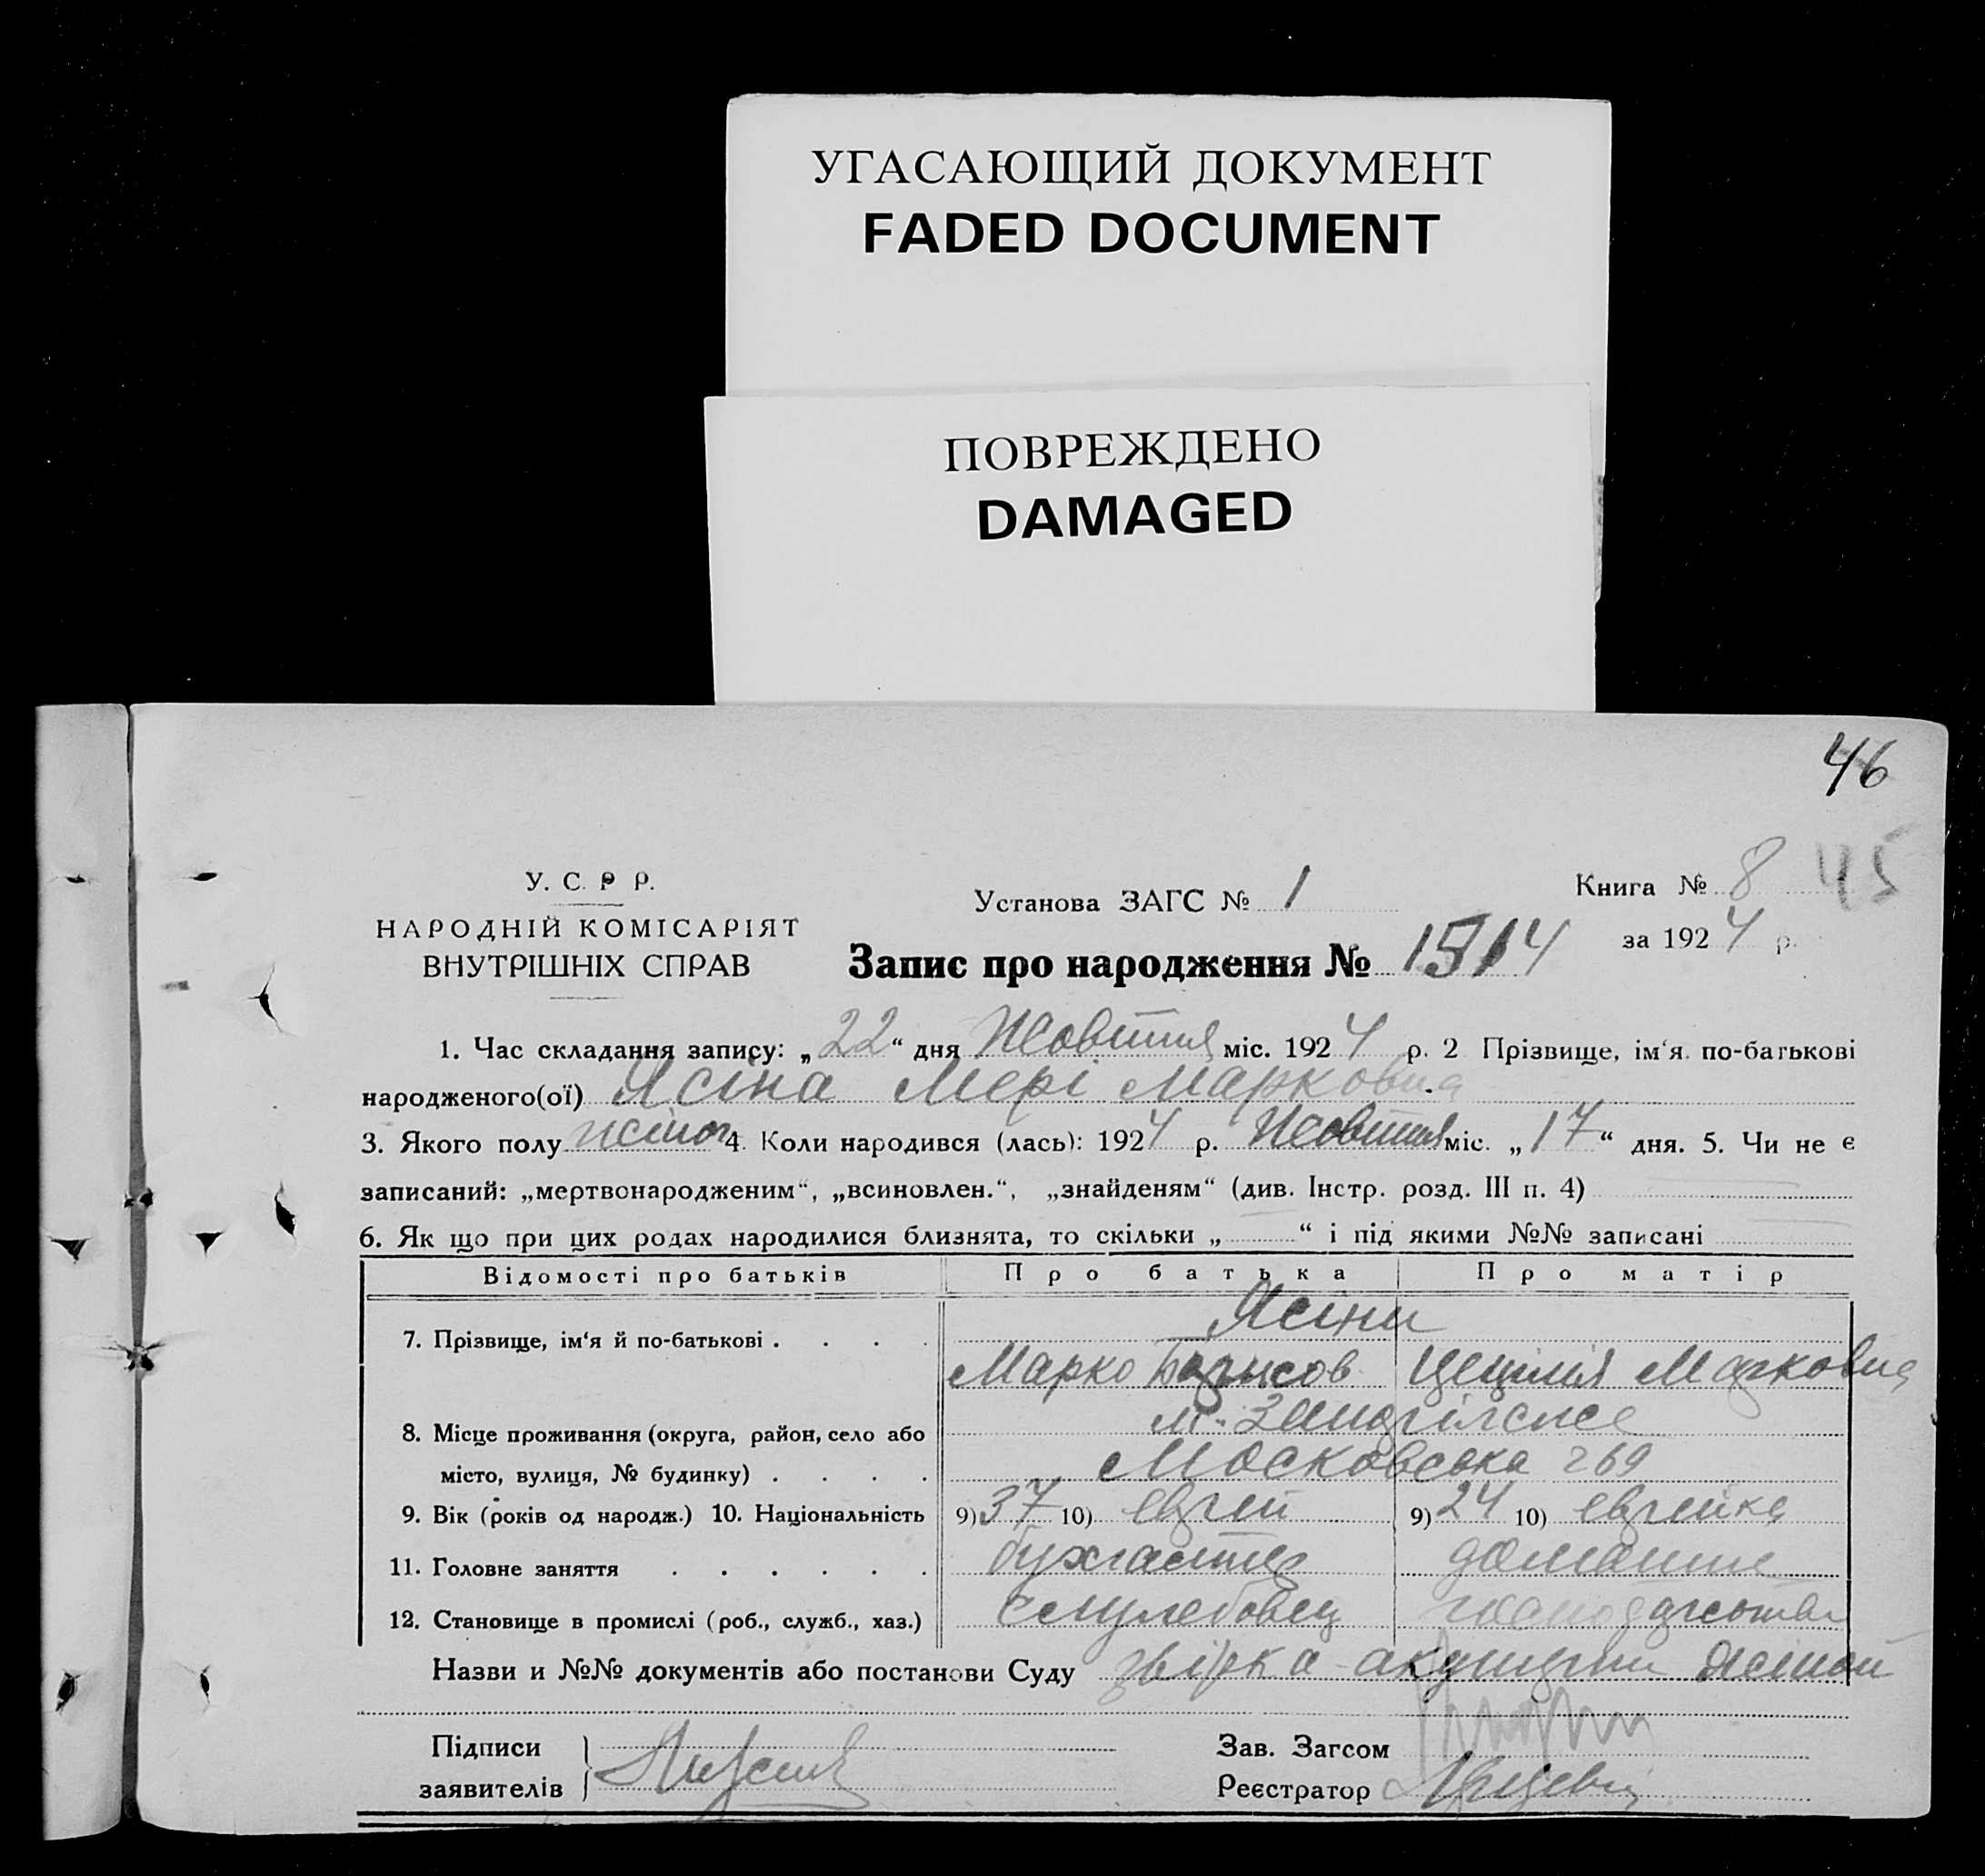 УГАСАЮЩИЙ ДОКУМЕНТ
FADED DOCUMENT
ПОВРЕЖДЕНО
DAMAGED
46
У. С. Р Р.
НАРОДНІЙ КОМІСАРІЯТ
ВНУТРІШНІХ СПРАВ
Установа ЗАГС № 1
Книга № 8 45
за 1924 р.
Запис про народження № 1514
1. Час складання запису: „22“ дня Жовтня міс. 1924 р. 2 Прізвище, ім‘я по-батькові
народженого(ої) Ясіна Мері Марковна
3. Якого полу жіноч 4. Коли народився (лась): 1924 р. Жовтня міс. „17“ дня. 5. Чи не є
записаний: „мертвонародженим“, „всиновлен.“, „знайденям“ (див. Інстр. розд. III п. 4)
6. Як що при цих родах народилися близнята, то скільки „ “ і під якими №№ записані
Відомості про батьків Про батька Про матір
Ясіни
7. Прізвище, ім‘я й по-батькові . . . .
Марко Борисов Цецилія Марковна
м. Запоріжже
8. Місце проживання (округа, район, село або
місто, вулиця, № будинку) . . . . Московська 269
9. Вік (років од народж.) 10. Національність 9) 37 10) еврей 9) 24 10) еврейка
11. Головне заняття . . . . . . бухгалтер домашне
12. Становище в промислі (роб., служб., хаз.) господарство
Назви и №№ документів або постанови Суду акушерки Ясіной
Підписи
заявителів
Зав. Загсом
Реєстратор